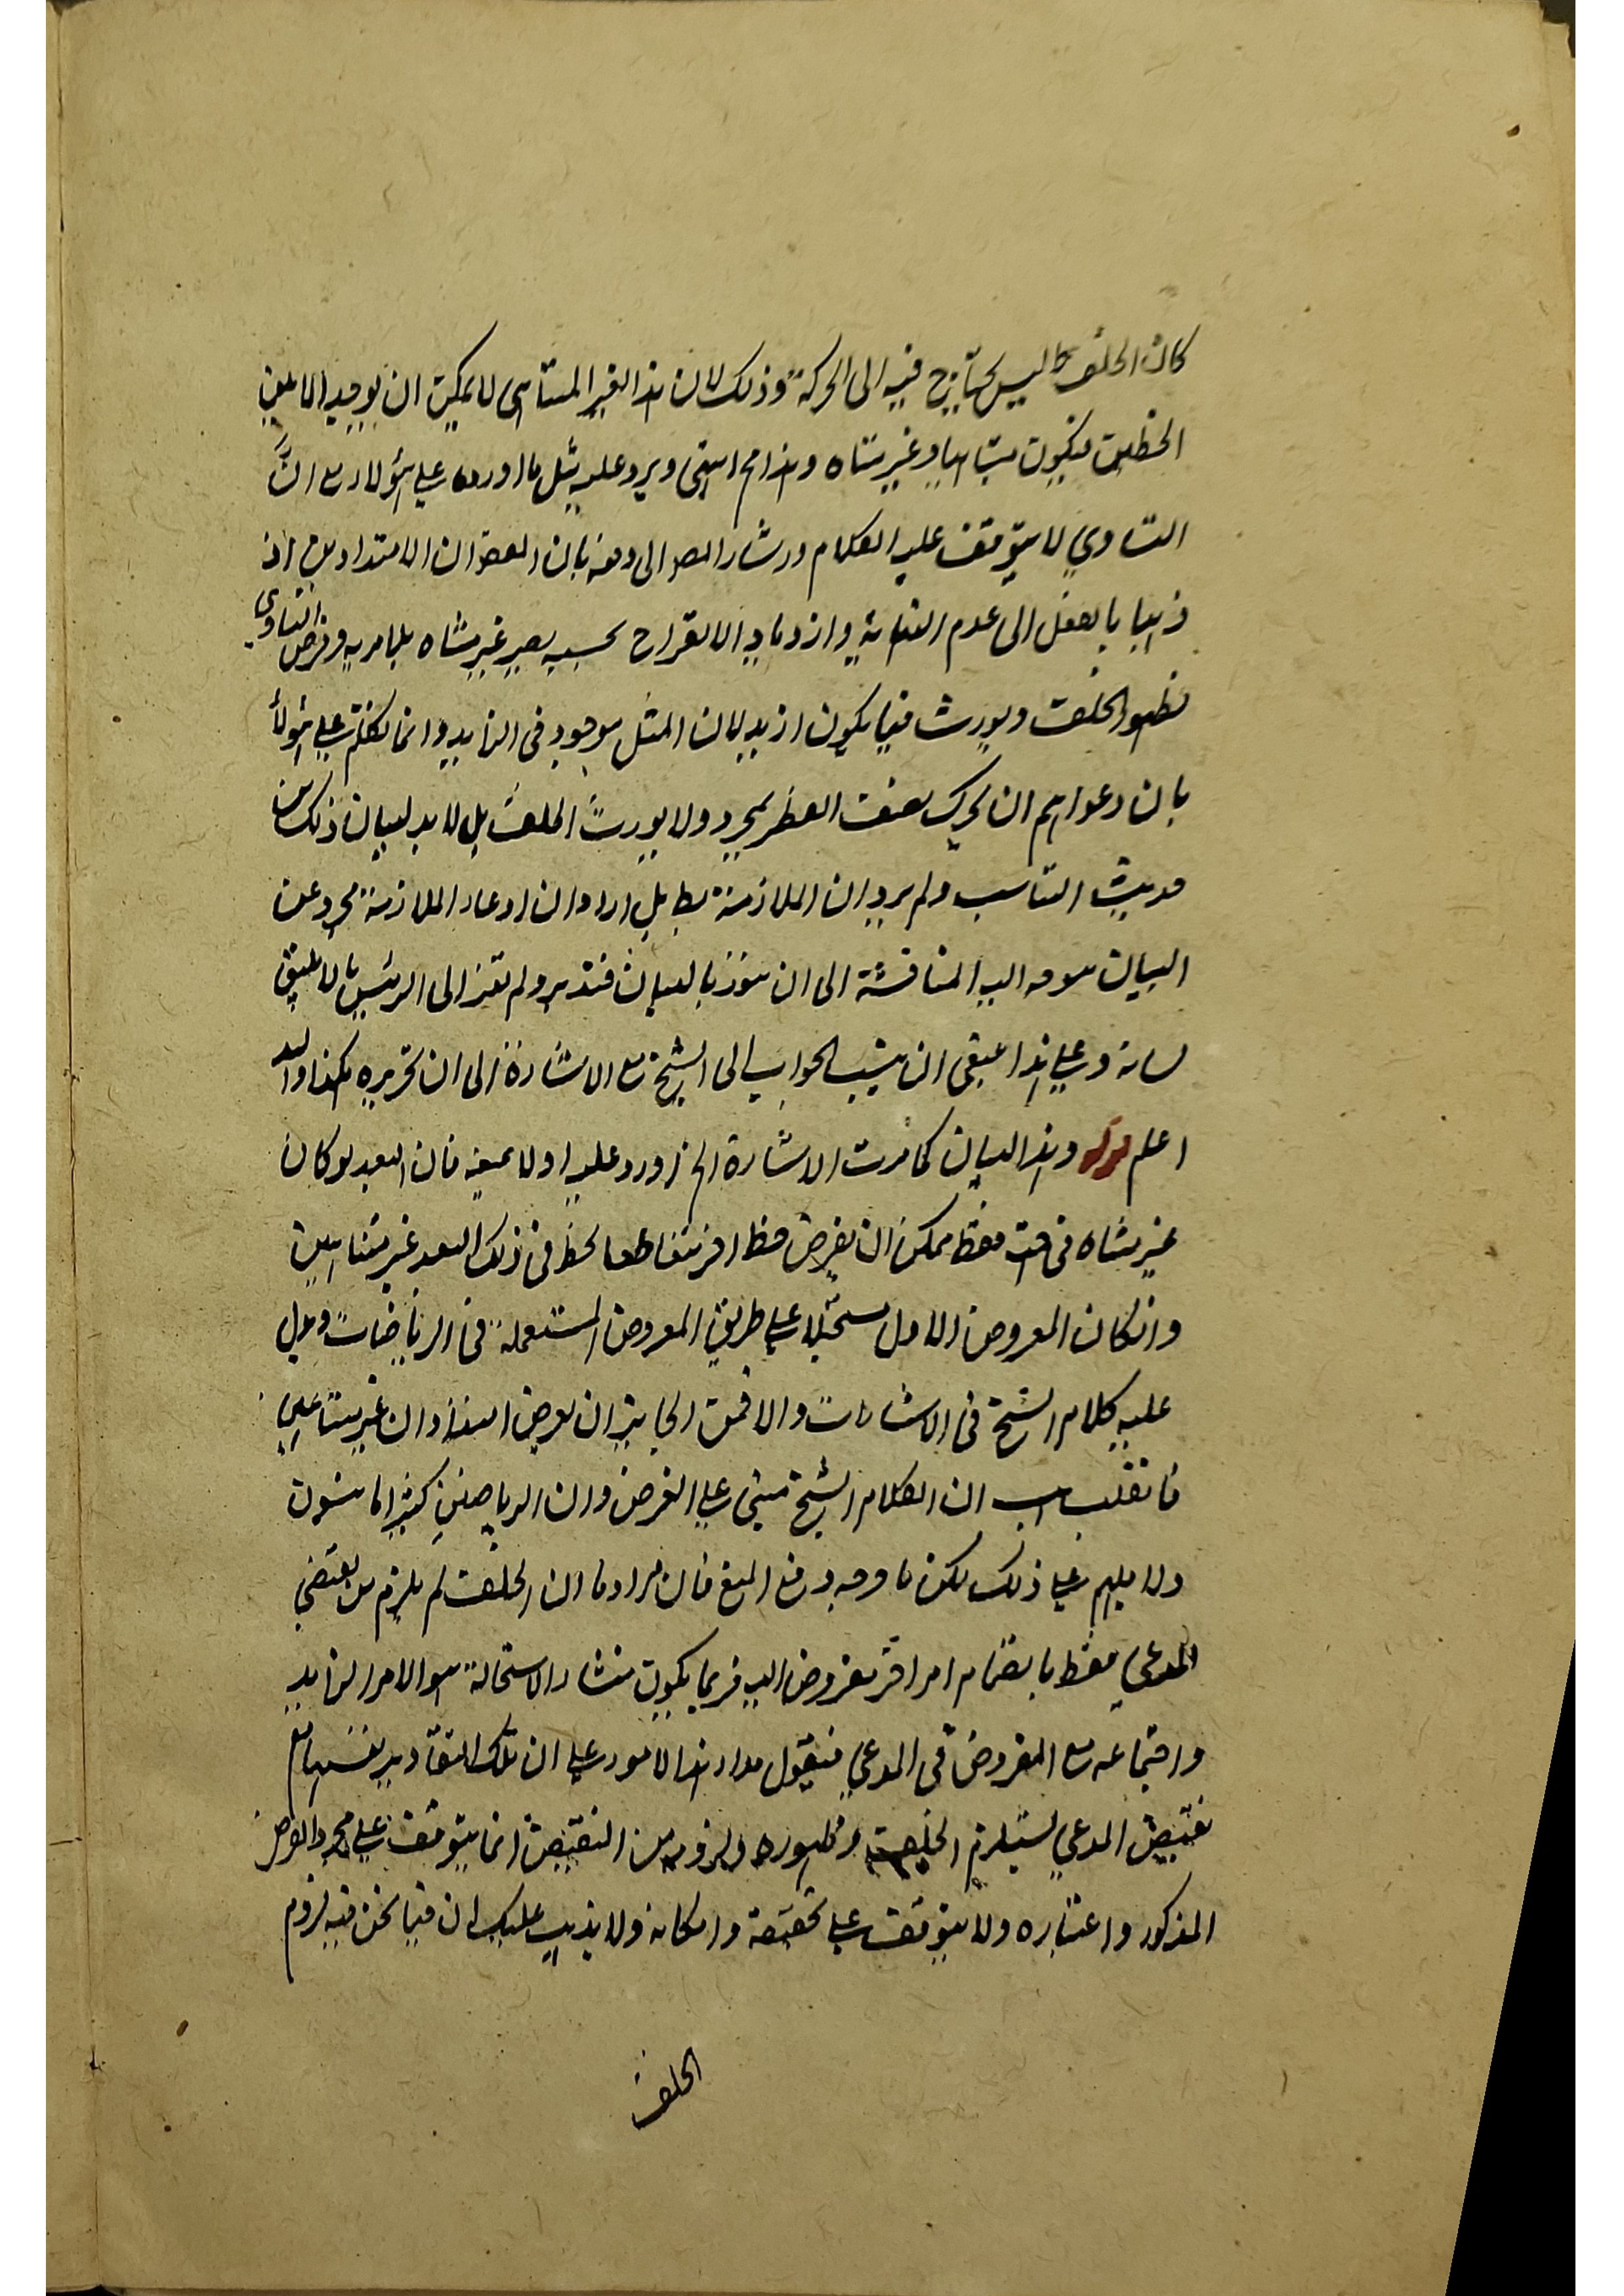 كان الخلف مما ليس يحتاج فيه الى الحركة وذلك لان هذا الغير المتناهى لا يمكن ان يوجد الا بين
الخطين فيكون متناهيا وغير متناه وهذا مح انتهى ويرد عليه مثل ما اورده على هؤلاء مع ان
التساوي لا يتوقف عليه الكلام واشار المص الى دفعه بان المفروض ان الامتدادين اذ
ذهبا بالفعل الى عدم النهاية وازدياد الانفراج بحسبه يصير غير متناه بلا مرية وفرض التساوي
لظهور الخلف ويورث فيما يكون ازيد لان المثل موجود فى الزايد وانما تكلم على هؤلاء
بان دعواهم ان يحرك نصف القطر بمجرده لا يورث الخلف بل لا بد لبيان ذلك من
حديث التناسب ولم يرد ان الملازمة بط بل اراد ان ادعاء الملازمة مجرد عن
البيان يتوجه اليه المناقشة الى ان ينور بالبيان فتدبر ولم تعز الى الرئيس ما لا يليق
بشانه وعلى هذا ينبغى ان ينسب الجواب الى الشيخ مع الاشارة الى ان تحريره هكذا والله
اعلم قوله وهذا البيان كما مرت الاشارة الخ اورد عليه اولا بمنعه فان البعد لو كان
غير متناه فى جهة فقط يمكن ان يفرض خط اخر مقاطعا لخط فى ذلك البعد غير متناهيين
وان كان المفروض الاول مستحيلا على طريق الفروض المستعملة فى الرياضيات ويدل
عليه كلام الشيخ فى الاشارات والا فمن الجايز ان يفرض امتدادان غير متناهيين
فانقلت هب ان الكلام الشيخ مبنى على الفرض وان الرياضيين كثيرا ما يبنون
دلايلهم على ذلك لكن ما وجه دفع المنع فان مرادنا ان الخلف لم يلزم من نقيض
المدعى فقط بانضمام امر اخر مفروض اليه فربما يكون منشاء الاستحالة هو الامر الزايد
واجتماعه مع المفروض فى المدعي فنقول مدار هذا الامور على ان تلك التقادير بنفسها مع
نقيض المدعي يستلزم الخلف وظهوره ولزومه من النقيض انما يتوقف على مجرد الفرض
المذكور واعتباره ولا يتوقف على تحققه وامكانه ولا يذهب عليك ان فيما نحن فيه لزوم
الخلف